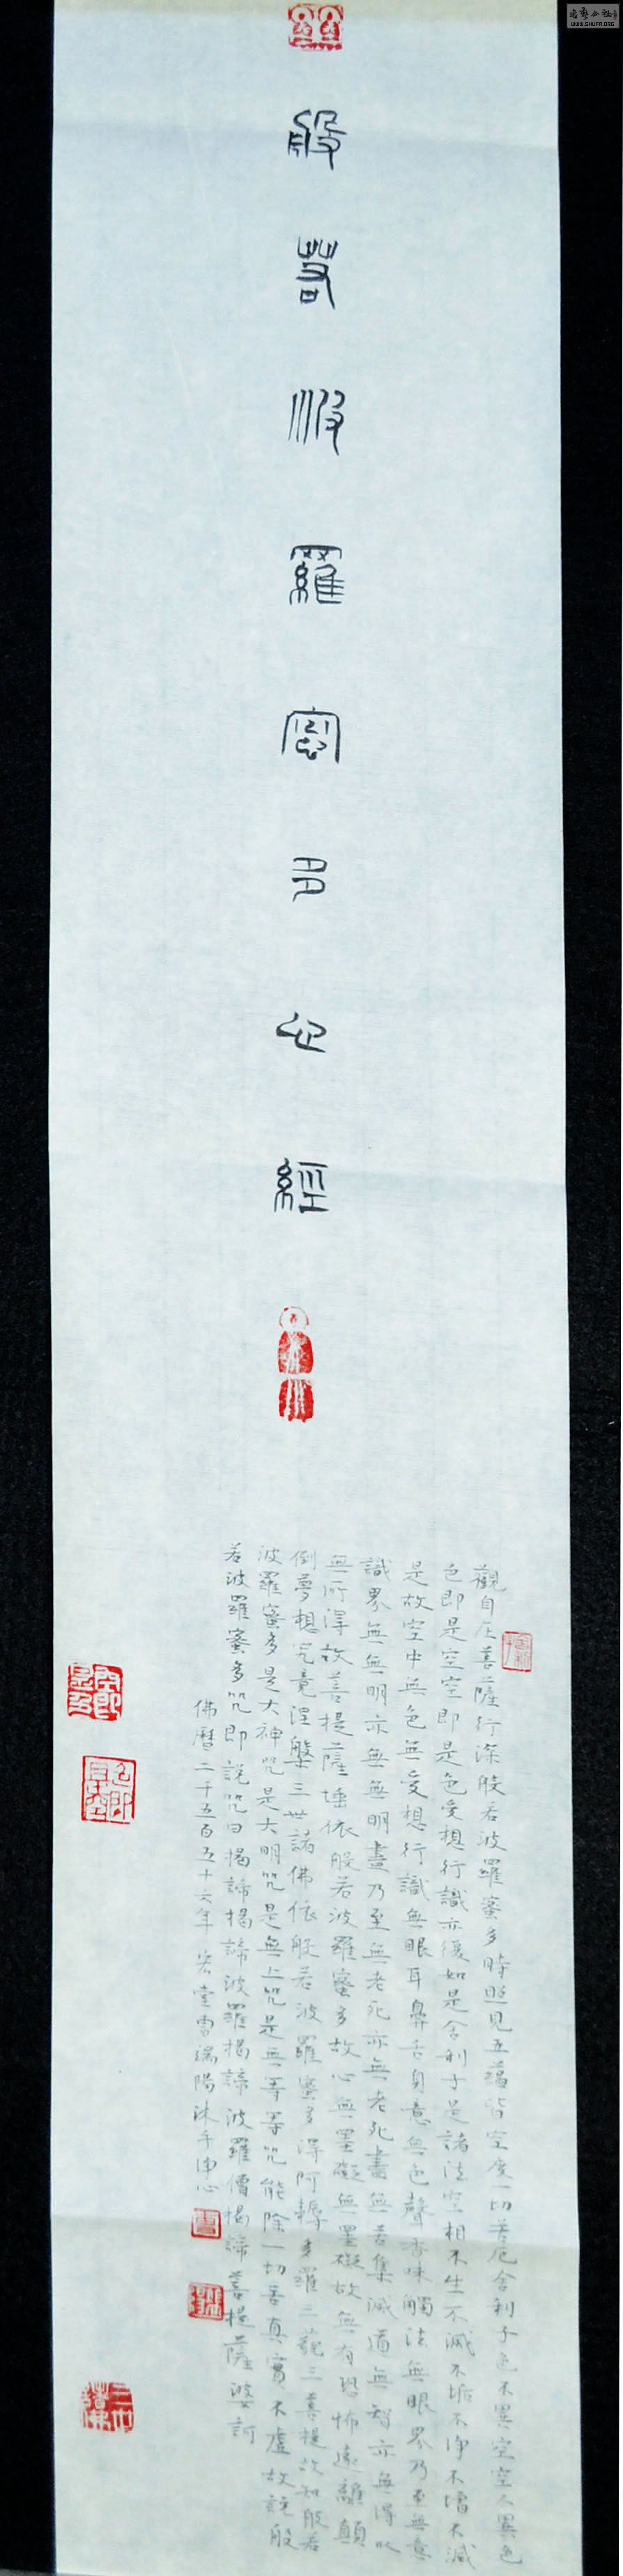 般若波羅密多心經
觀自在菩薩行深般若波羅蜜多時照見五蘊皆空度一切苦厄舍利子色不異空空不異色
色即是空空即是色受想行識亦復如是舍利子是諸法空相不生不滅不垢不淨不增不減
是故空中無色無受想行識無眼耳鼻舌身意無色聲香味觸法無眼界乃至無意
識界無無明亦無無明盡乃至無老死亦無老死盡無苦集滅道無智亦無得以
無所得故菩提薩埵依般若波羅蜜多故心無罣礙無罣礙故無有恐怖遠離顛
倒夢想究竟涅槃三世諸佛依般若波羅蜜多得阿耨多羅三藐三菩提故知般若
波羅蜜多是大神咒是大明咒是無上咒是無等等咒能除一切苦真實不虛故說般
若波羅蜜多咒即說咒曰揭諦揭諦波羅揭諦波羅僧揭諦菩提薩婆訶
佛曆二千五百五十六年 雷瑞陽沐手
WWW.SHUFA.ORG